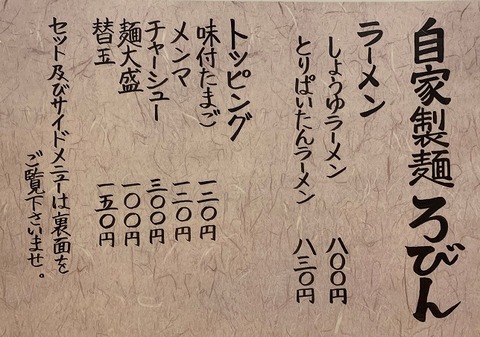 自家製麺 ろびん
ラーメン
しょうゆラーメン 八〇〇円
とりぱいたんラーメン 八三〇円
トッピング
味付たまご 一二〇円
メンマ 一二〇円
チャーシュー 三〇〇円
麺大盛 一〇〇円
替玉 一五〇円
セット及びサイドメニューは裏面を
ご覧下さいませ。